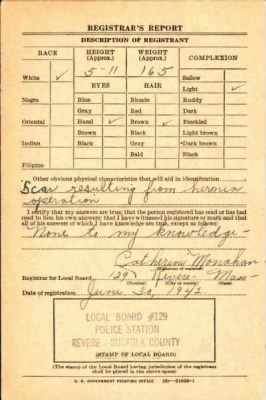 REGISTRAR'S REPORT
DESCRIPTION OF REGISTRANT
RACE HEIGHT (Approx.) WEIGHT (Approx.) COMPLEXION
White ✓ 5-11 165 Sallow
EYES HAIR Light ✓
Negro Blue Blonde Ruddy
Gray Red Dark
Oriental Hazel ✓ Brown ✓ Freckled
Brown Black Light brown
Indian Black Gray Dark brown
Bald Black
Filipino
Other obvious physical characteristics that will aid in identification
Scar resulting from hernia
operation
I certify that my answers are true; that the person registered has read or has had
read to him his own answers; that I have witnessed his signature or mark and that
all of his answers of which I have knowledge are true, except as follows:
None to my knowledge -
Catherine Monahan
(Signature of registrar)
Registrar for Local Board 129 Revere - Mass
(Number) (City or county) (State)
Date of registration June 30, 1942
LOCAL BOARD #129
POLICE STATION
REVERE - SUFFOLK COUNTY
(STAMP OF LOCAL BOARD)
(The stamp of the Local Board having jurisdiction of the registrant
shall be placed in the above space.)
U. S. GOVERNMENT PRINTING OFFICE 16—21630-1